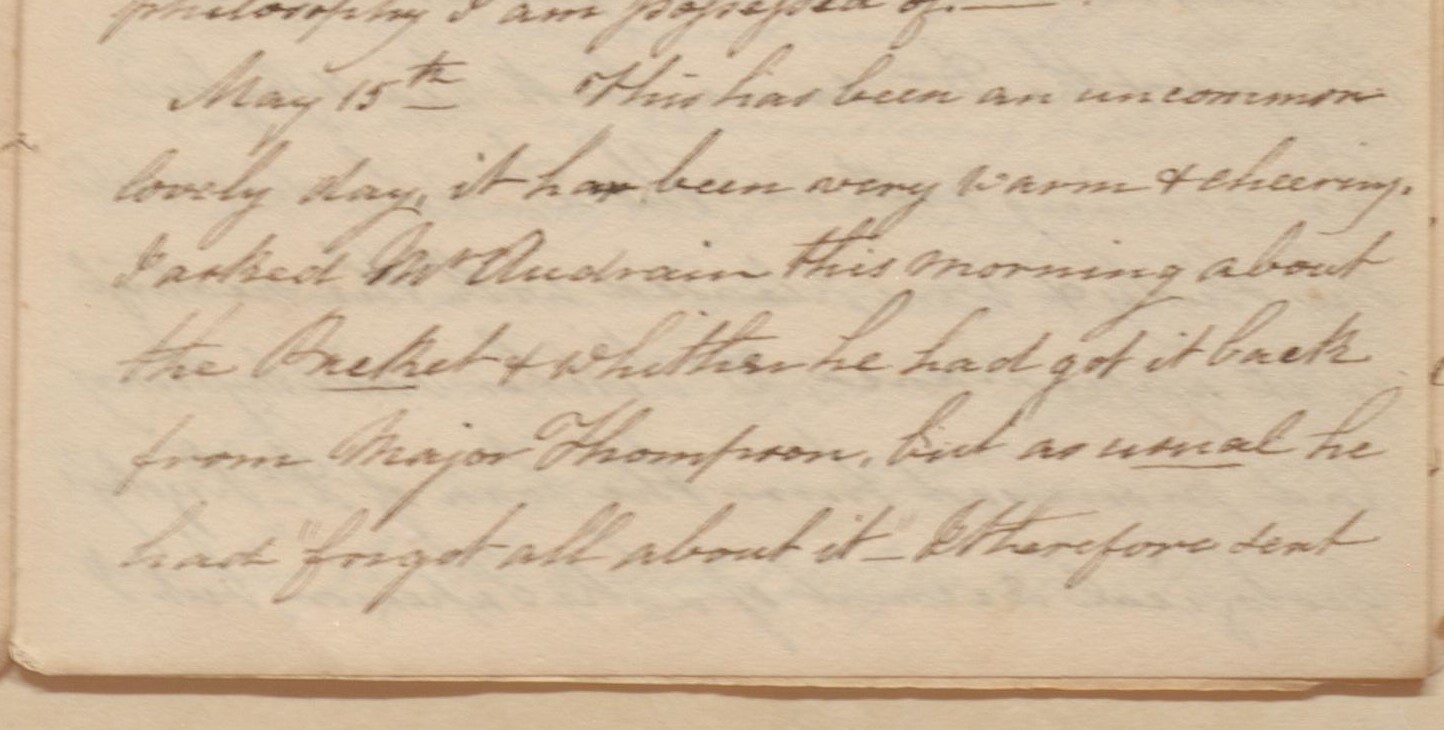 philosophy I am possessed of.—
May 15th This has been an uncommon
lovely day, it has been very warm & cheering.
I asked Mr Audrain this morning about
the Packet & whither he had got it back
from Major Thompson, but as usual he
had "forgot all about it" – I therefore sent